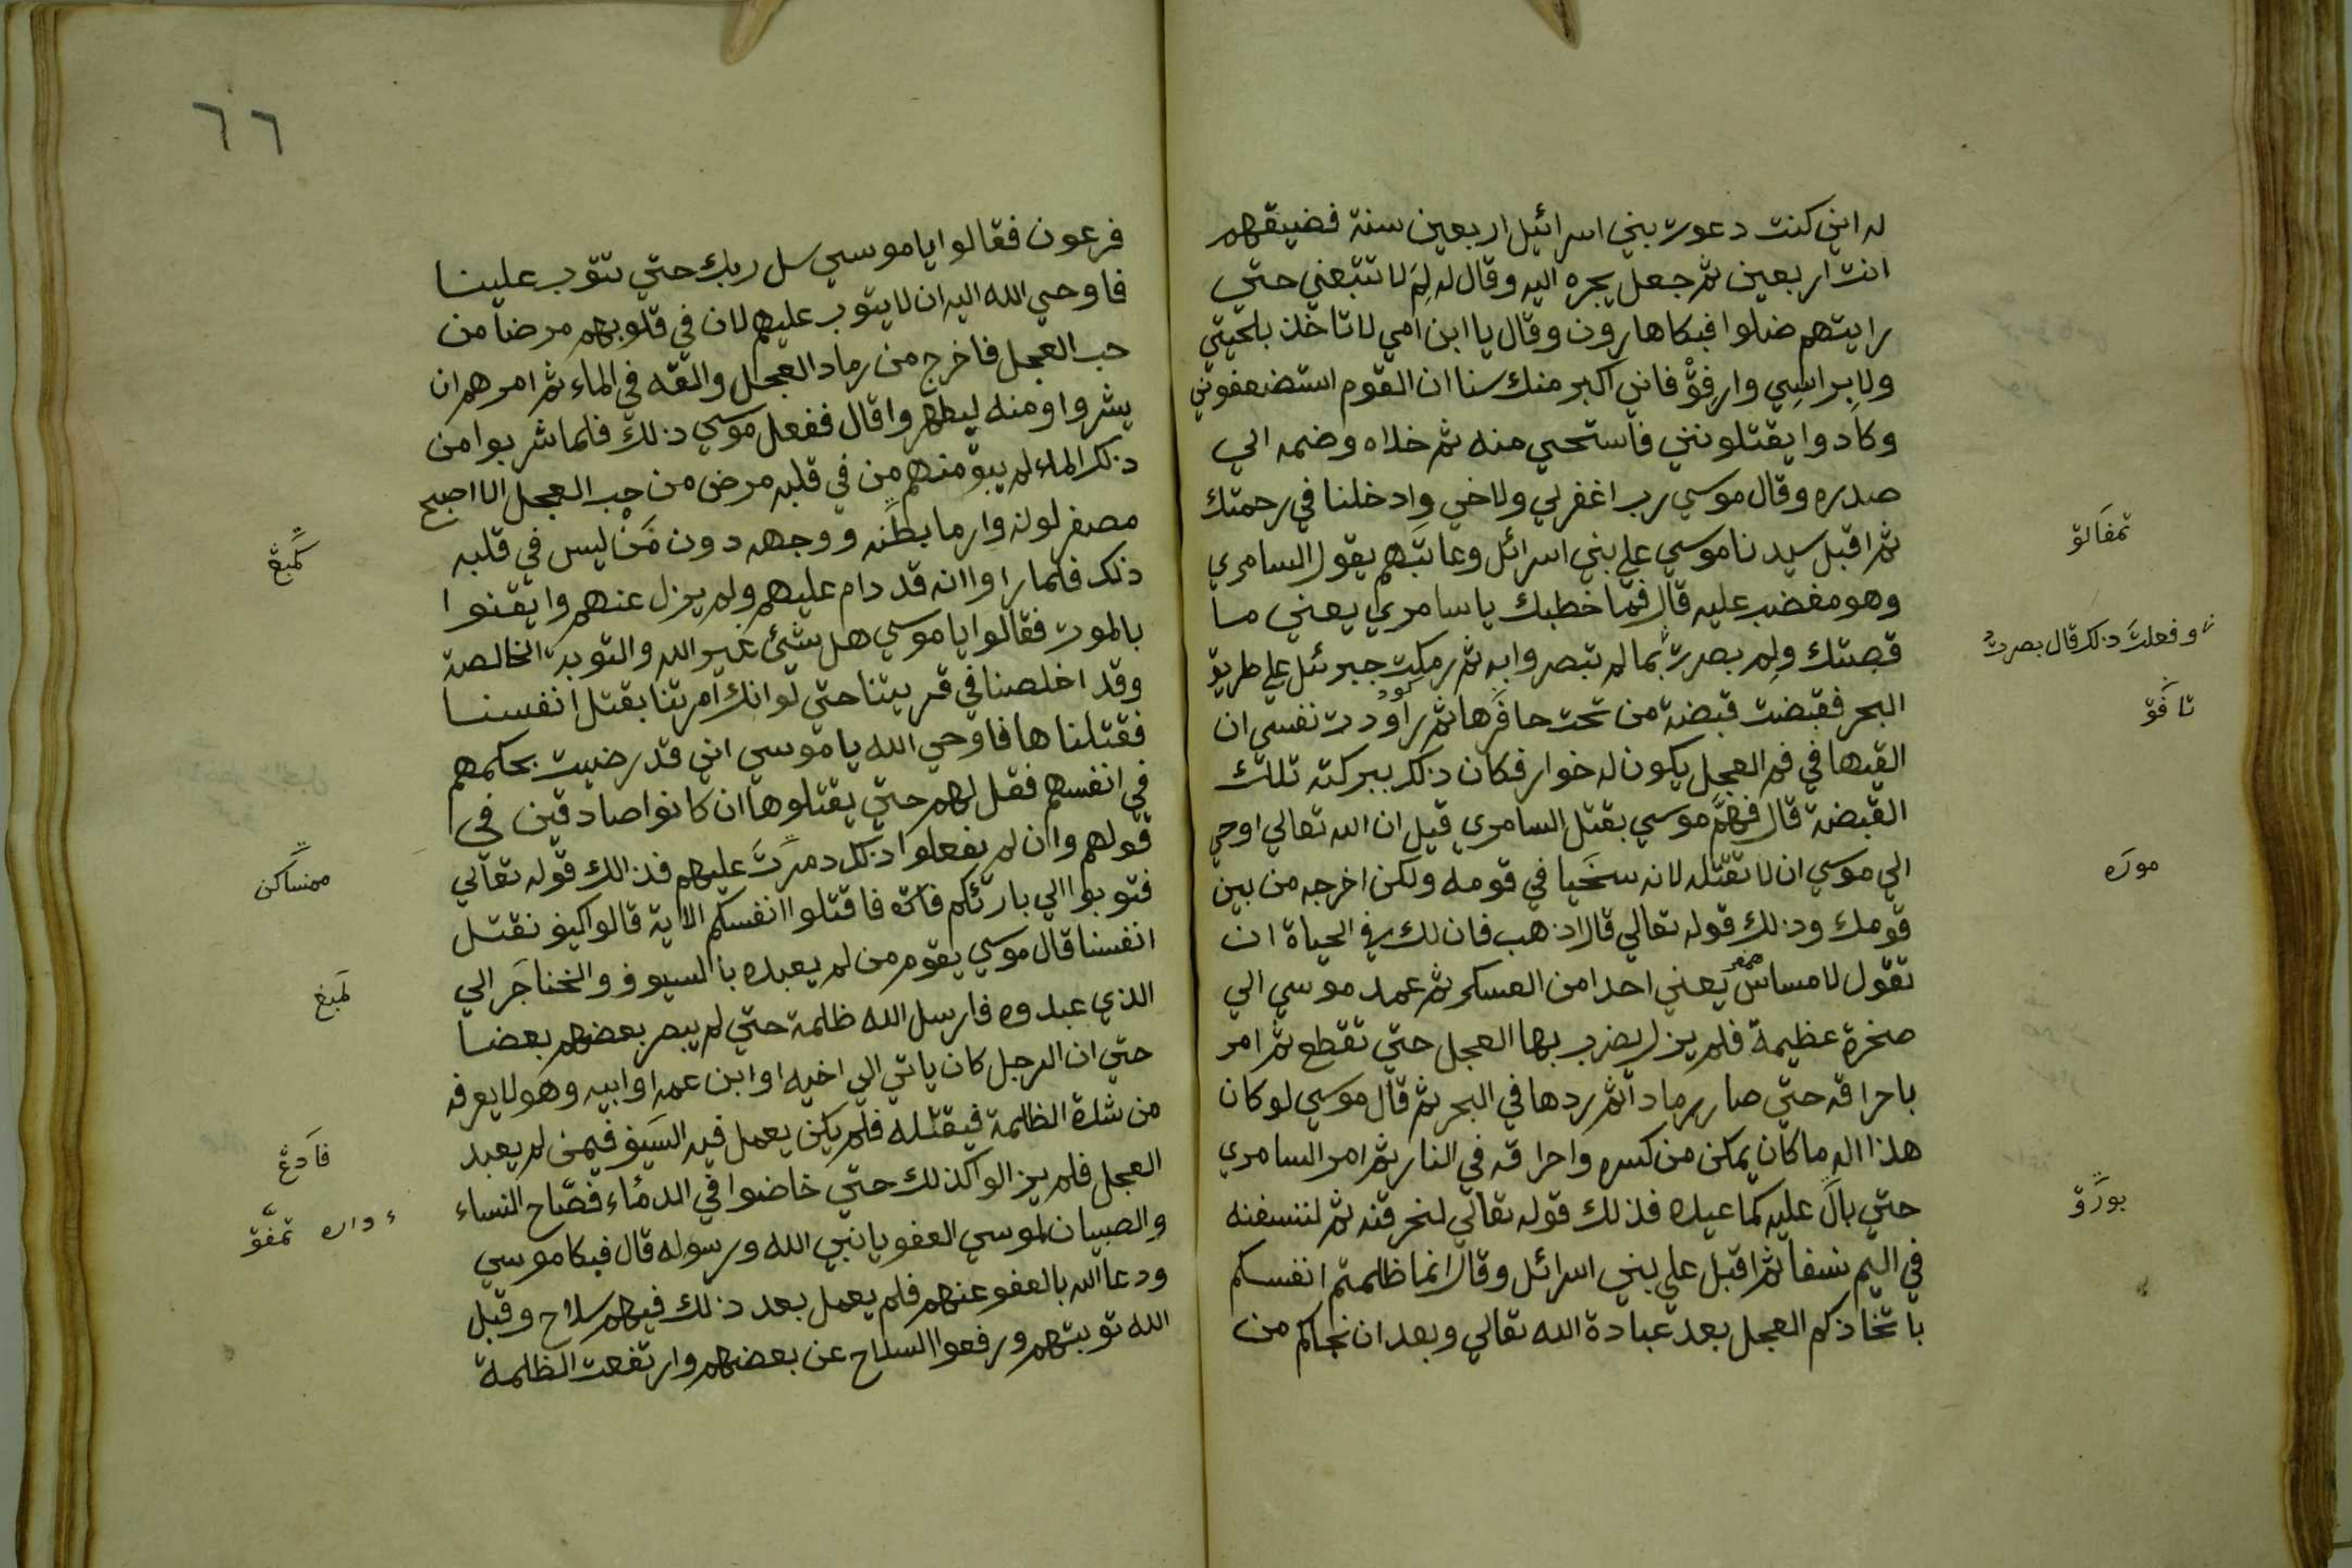 له اني كنت دعوت بني اسرائيل اربعين سنة فضيقهم
انت اربعين ثم جعل يجره اليه وقال له لِمَ لا تتبعني حتي
رايتهم ضلوا فبكا هارون وقال يا ابن امي لا تاخذ بلحيتي
ولا براسِي وارفق فاني اكبر منك سنا ان القوم استضعفوني
وكادوا يقتلونني فاستحي منه ثم خلاه وضمه الي
صدره وقال موسي رب اغفر لي ولاخي وادخلنا في رحمتك
ثم اقبل سيدنا موسي علي بني اسرائل وعاتبهم يقول السامري
وهو مغضب عليه قال فما خطبك يا سامري يعني ما
قصتك ولم بصرت بما لم تبصروا به ثم رمكت جبرئل علي طريق
البحر فقبضت قبضة من تحت حافرها ثم راودت نفسي ان
القيها في فم العجل يكون له خوار فكان ذلك ببركته تلك
القبضة قال فهمّ موسي بقتل السامري قيل ان الله تعالي اوحي
الي موسي ان لا تقتله لانه سخيا في قومه ولكن اخرجه من بين
قومك وذلك قوله تعالي قال اذهب فان لك في الحياة ان
تقول لا مساس يعني احدا من العسكر ثم عمد موسي الي
صخرة عظيمة فلم يزل يضرب بها العجل حتي تقطع ثم امر
باحراقه حتي صار رمادا ثم ردها في البحر ثم قال موسي لو كان
هذا اله ما كان يمكن من كسره واحراقه في النار ثم امر السامري
حتي بال عليه كما عبده فذلك قوله تعالي لنحرقنه ثم لننسفنه
في اليم نسفا ثم اقبل علي بني اسرائل وقال انما ظلمتم انفسكم
باتخاذكم العجل بعد عبادة الله تعالي وبعد ان نجاكم من
تمفالق
وفعلتَ ذلك قال بصرت
تافق
موره
بورق
٦٦
فرعون فقالوا يا موسي سل ربك حتي يتوب علينا
فاوحي الله اليه ان لا يتوب عليهم لان في قلوبهم مرضا من
حب العجل فاخرج من رماد العجل والقه في الماء ثم امرهم ان
يشروا ومنه ليطهروا قال ففعل موسي ذلك فلما شربوا من
ذلك الماء لم يبق منهم من في قلبه مرض من حب العجل الا اصبح
مصفر لونه وارما بطنه ووجهه دون مَنْ ليس في قلبه
ذلك فلما راوا انه قد دام عليهم ولم يزل عنهم وايقنوا
بالموت فقالوا يا موسي هل شيئ غير الله والتوبة الخالصة
وقد اخلصنا في قريتنا حتي لو انك امرتنا بقتل انفسنا
فقتلناها فاوحي الله يا موسي اني قد رضيت بحكمهم
في انفسهم فقل لهم حتي يقتلوها ان كانوا صادقين في
قولهم وان لم يفعلوا ذلك دمرتَ عليهم فذالك قوله تعالي
فتوبوا الي بارئكم فاقتلوا انفسكم الاية قالوا كيف نقتل
انفسنا قال موسي يقوم من لم يعبده بالسيوف والخناجر الي
الذي عبدوه فارسل الله ظلمة حتي لم يبصر بعضهم بعضا
حتي ان الرجل كان ياتي الي اخيه او ابن عمه او ابيه وهو لا يعرفه
من شدة الظلمة فيقتله فلم يكن يعمل فيه السيف فيمن لم يعبد
العجل فلم يزالوا كذلك حتي خاضوا في الدمٰاء فصاح النساء
والصبيان لموسي العفو يا نبي الله ورسوله قال فبكا موسي
ودعا الله بالعفو عنهم فلم يعمل بعد ذلك فيهم سلاح وقبل
الله توبتهم ورفعوا السلاح عن بعضهم وارتفعت الظلمة
كمبڠ
ممنساكن
لمبڠ
فادڠ
داره تمفق